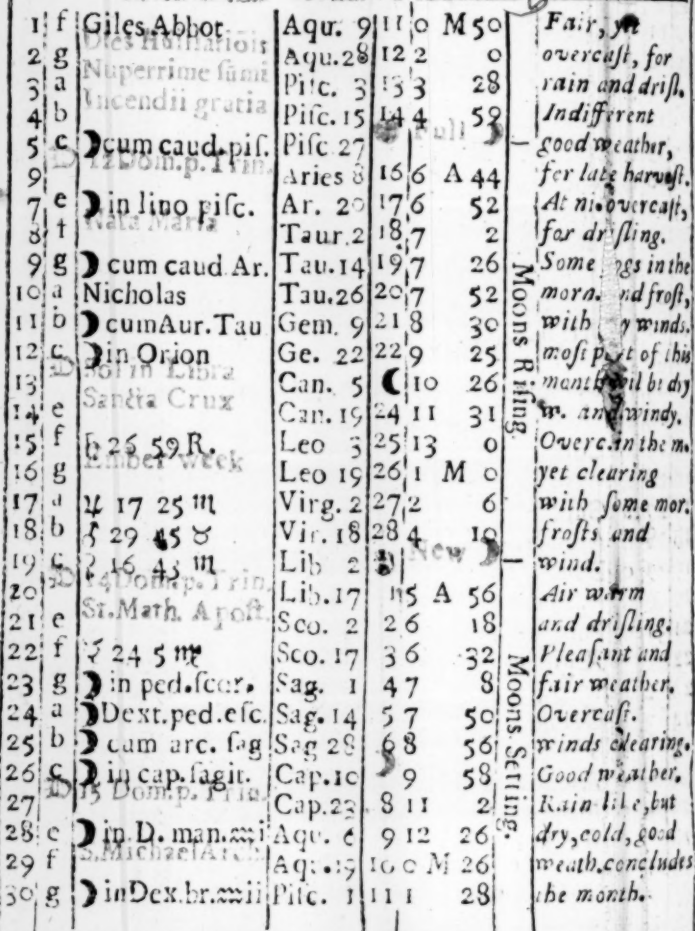 1 f Giles Abbot Aqu. 9 11 0 M 50 Fair, yet
2 g Dies Humiliatiõis Aqu. 28 12 2 0 overcaſt, for
3 a Nuperrime ſumi Piſc. 3 13 3 28 rain and driſl.
4 b Incendii gratia Piſc. 15 14 4 59 Indifferent
5 c ☽ cum caud. piſ. Piſc 27 Full ☽ good weather,
9 D 12 Dom. p. Trin. Aries 8 16 6 A 44 for late harveſt.
7 e ☽ in lino piſc. Ar. 20 17 6 52 At overcaſt,
8 f Nata Maria Taur. 2 18 7 2 for driſling.
9 g ☽ cum caud Ar. Tau. 14 19 7 26 Some in the
10 a Nicholas Tau. 26 20 7 52 morn. and froſt,
11 b ☽ cum Aur. Tau Gem. 9 21 8 30 with winds.
12 c ☽ in Orion Ge. 22 22 9 25 moſt part of this
13 D Sol in Libra Can. 5 ☾ 10 26 month wil be dry
14 e Sancta Crux Can. 19 24 11 31 w. and windy.
15 f ♄ 26 59 R. Leo 3 25 13 0 Overc. in the m.
16 g Ember week Leo 19 26 1 M 0 yet clearing
17 a ♃ 17 25 ♏ Virg. 2 27 2 6 with ſome mor.
18 b ♂ 29 45 ♉ Vir. 18 28 4 19 froſts and
19 c ♀ 16 43 ♏ Lib 2 New ☽ wind.
20 D 14 Dom. p. Trin. Lib. 17 5 A 56 Air warm
21 e St. Math. Apoſt. Sco. 2 2 6 18 and driſling.
22 f ☿ 24 5 ♍ Sco. 17 3 6 32 Pleaſant and
23 g ☽ in ped. ſcor. Sag. 1 4 7 8 fair weather.
24 a ☽ Dext. ped. eſc. Sag. 14 5 7 50 Overcaſt.
25 b ☽ cum arc. ſag Sag 28 6 8 56 winds clearing.
26 c ☽ in cap. ſagit. Cap. 10 9 58 Good weather.
27 D 15 Dom. p. Trin. Cap. 23 8 11 2 Rain like, but
28 e ☽ in D. man. ♒i Aqu. 6 9 12 26 dry, cold, good
29 f S. Michael Arch. Aqu. 19 10 0 M 26 weath. concludes
30 g ☽ in Dex. br. ♒ii Piſc. 1 11 1 28 the month.
Moons Riſing.
Moons Setting.